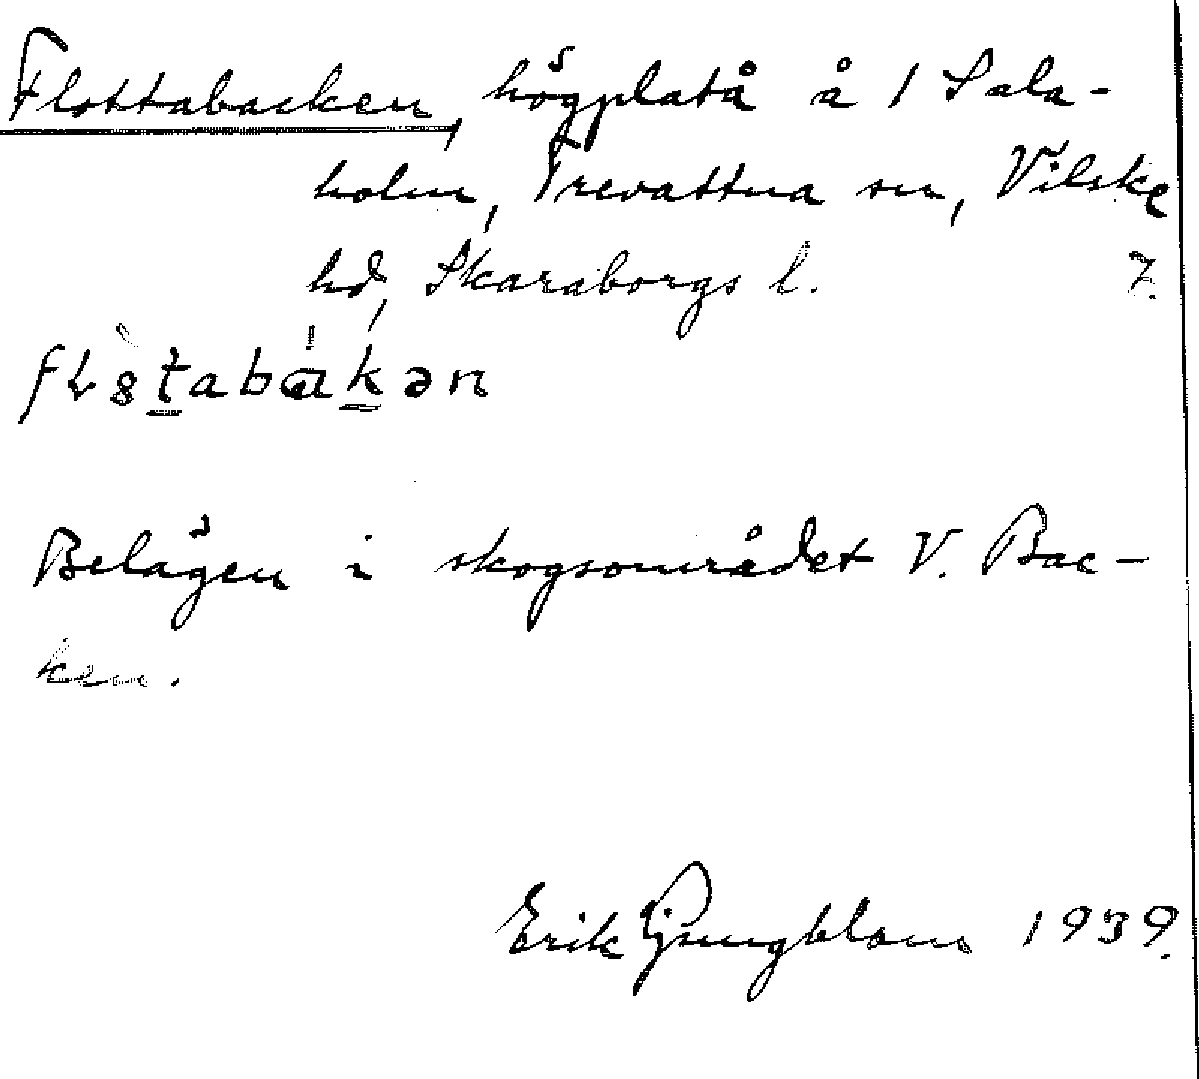 Flottabacken, högplatå å 1 Sala-
holm, Trevattna sn, Vilske
hd, Skaraborgs l. 7.
Belägen i skogsområdet V. Bac-
ken.
Erik Ljungblom 1939.